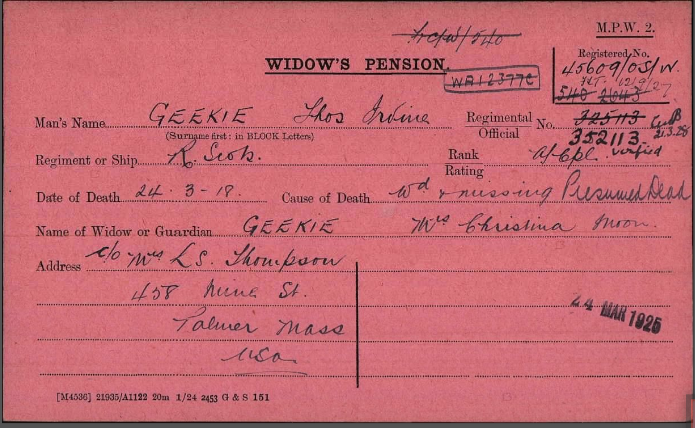 M.P.W. 2.
WIDOW'S PENSION.
WA12377C
Registered No.
45609/OS/W.
540 2043
Man's Name GEEKIE Thos Irvine
(Surname first: in BLOCK Letters)
Regimental
Official No. 325113
352113. verified
21.3.28
Regiment or Ship R. Scots.
Rank
Rating A/Cpl.
Date of Death 24. 3-18. Cause of Death Wd & missing Presumed Dead
Name of Widow or Guardian GEEKIE Mrs Christina Moon.
Address c/o Mrs L.S. Thompson
458 St.
Palmer Mass
USA
24 MAR 1925
[M4536] 21935/A1122 20m 1/24 2453 G & S 151